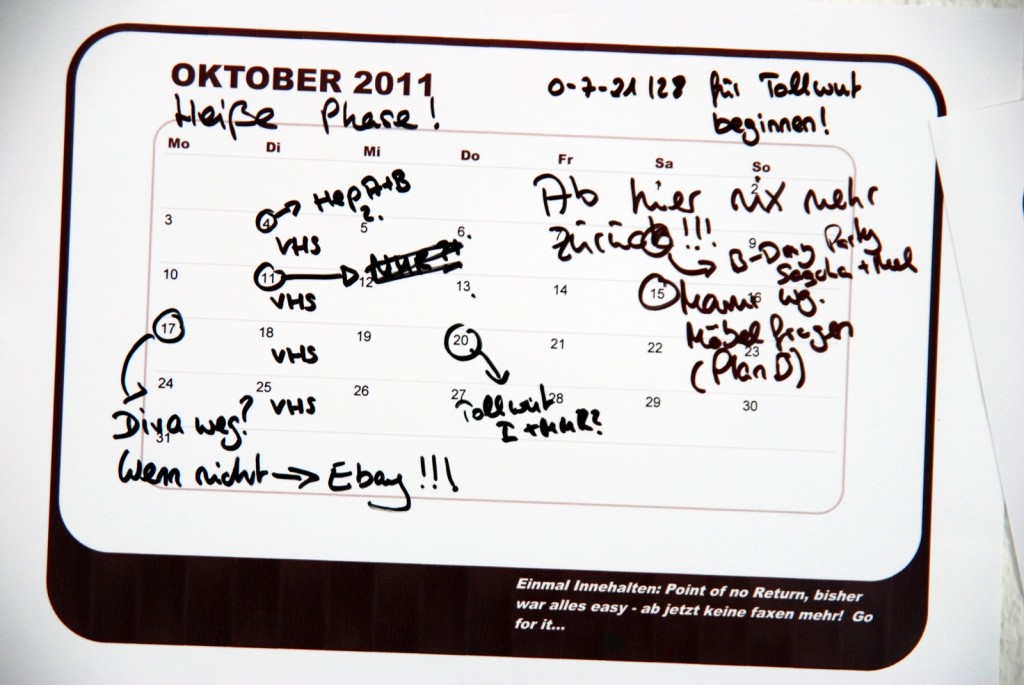 OKTOBER 2011
Heiße Phase!
0-7-21/28 für Tollwut
beginnen!
Mo Di Mi Do Fr Sa So
Ab hier nix mehr
zurück!!!
2
3 4 → Hep A+B
2.
5 6. 7 9
VHS
B-Day Party
Sascha +
10 11 → 12 13. 14 15 16
VHS
wg.
Möbel fragen
(Plan B)
17 18 19 20 21 22 23
VHS
24 25 26 27 28 29 30
VHS
Tollwut
I +MMR?
31
Diva weg?
Wenn nicht → Ebay!!!
Einmal Innehalten: Point of no Return, bisher
war alles easy - ab jetzt keine faxen mehr! Go
for it...